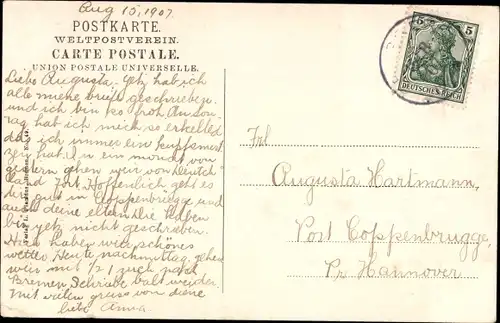 Aug 10, 1907.
POSTKARTE.
WELTPOSTVEREIN.
CARTE POSTALE.
UNION POSTALE UNIVERSELLE.
Liebe Augusta. Jetz hab ich
alle meine briefe geschrieben.
und ich bin so froh. Am Son-
tag hat ich mich so erkelted
das ich immer ein kopfsmert
zen hat. In ein monat von
gestern gehen wir von Deutch
land fort. Hoffenlich geht es
dir gut in Coppenbrügge und
auch deine eltern. Ihre haben
bis jetz nicht geschrieben.
Hier haben wir schönes
wetter. Heute nachmittag, gehen
wir mit ½ 1 zuch nach
Bremen. Schreibe balt wieder.
Mit vielen gruss von deine
liebe Anna
5 5
DEUTSCHES REICH
Frl
Augusta Hartmann,
Post Coppenbrugge,
Pr Hannover